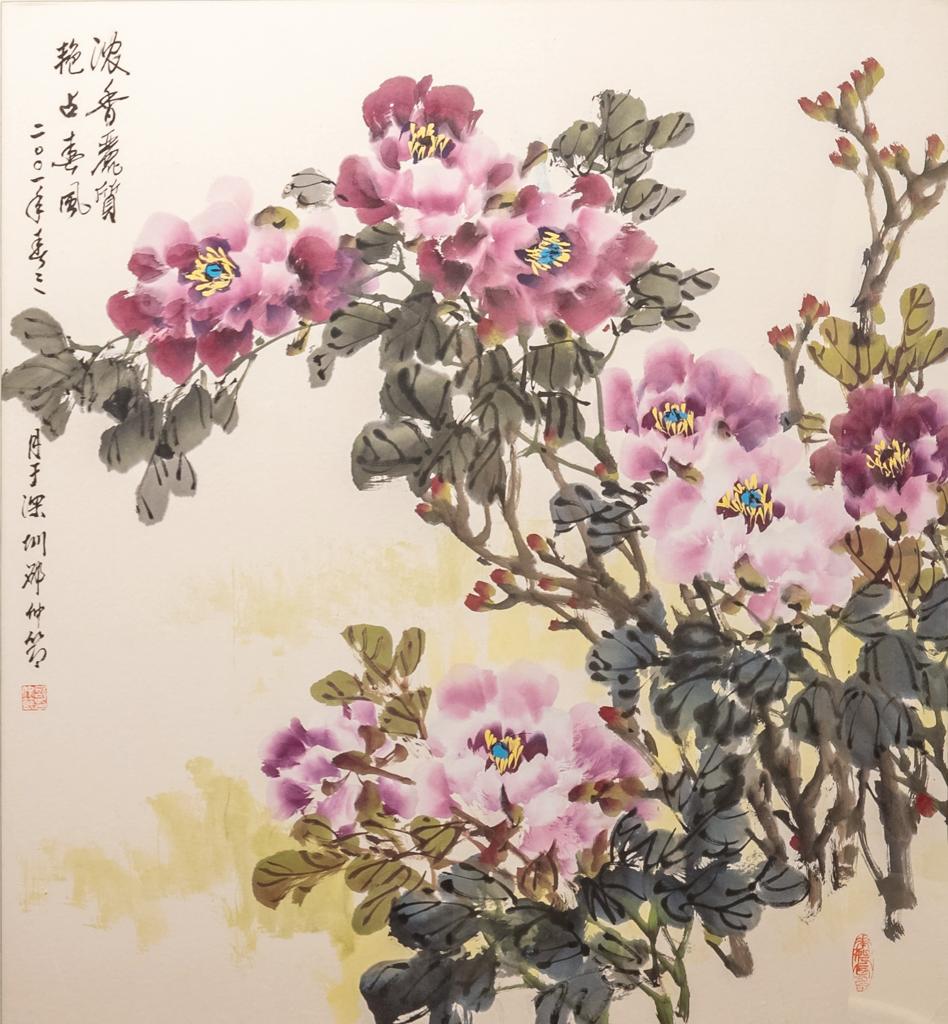 浓香麗質
艳占春风
二〇〇一年春三
月于深圳邓仲节